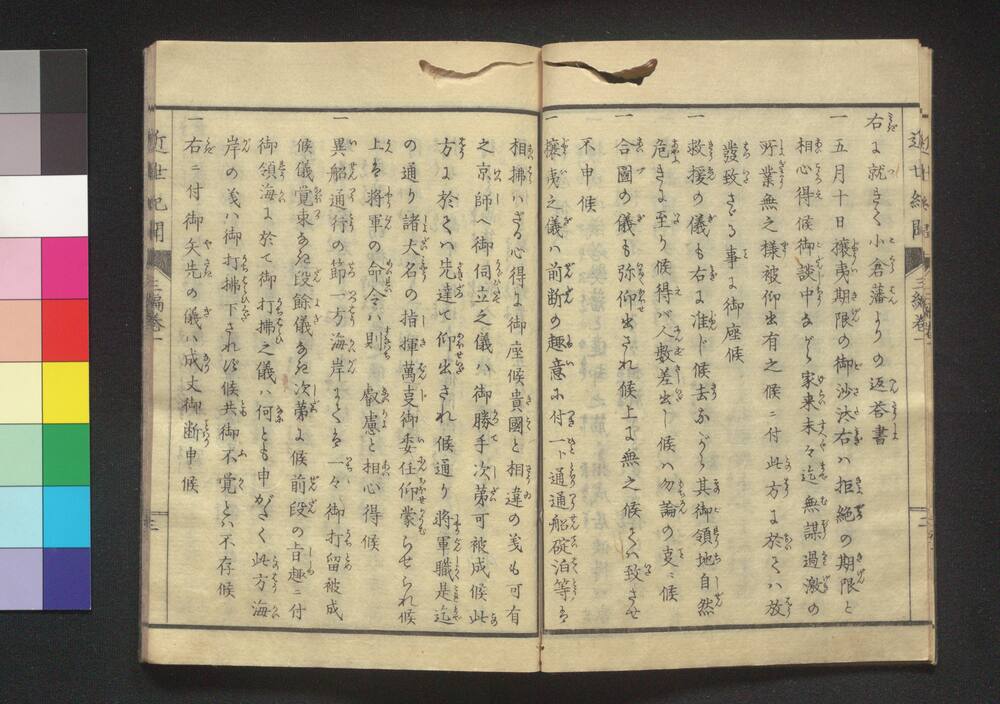 近世紀聞
三編巻一
二
右に就きて小倉藩よりの返答書
一五月十日攘夷期限の御沙汰右ハ拒絶の期限と
相心得候御談中なれど家来末々迄無謀過激の
所業無之様被仰出有之候ニ付此方に於てハ放
發致さゞる事に御座候
一救援の儀も右に准じ候去ながら其御領地自然
危きに至り候得バ人數差出し候ハ勿論の支ニ候
合圖の儀も弥仰出され候上に無之候てハ致させ
不申候
一攘夷之儀ハ前断の趣意に付一ト通通船碇泊等を
相拂ハざる心得に御座候貴國と相違の義も可有
之京師へ御伺立之儀ハ御勝手次第可被成候此
方に於てハ先達て仰出され候通り將軍職是迄
の通り諸大名の指揮萬支御委任仰蒙らせられ候
上ハ將軍の命令ハ則叡慮と相心得候
一異舩通行の節一方海岸にてハ一々御打留被成
候儀覚束なき段餘儀なき次第に候前段の旨趣ニ付
御領海に於て御打拂之儀ハ何とも申がたく此方海
岸の義ハ御打拂下されず候共御不覚とハ不存候
一右ニ付御矢先の儀ハ成丈御断申候
近世紀聞
三編巻一
三